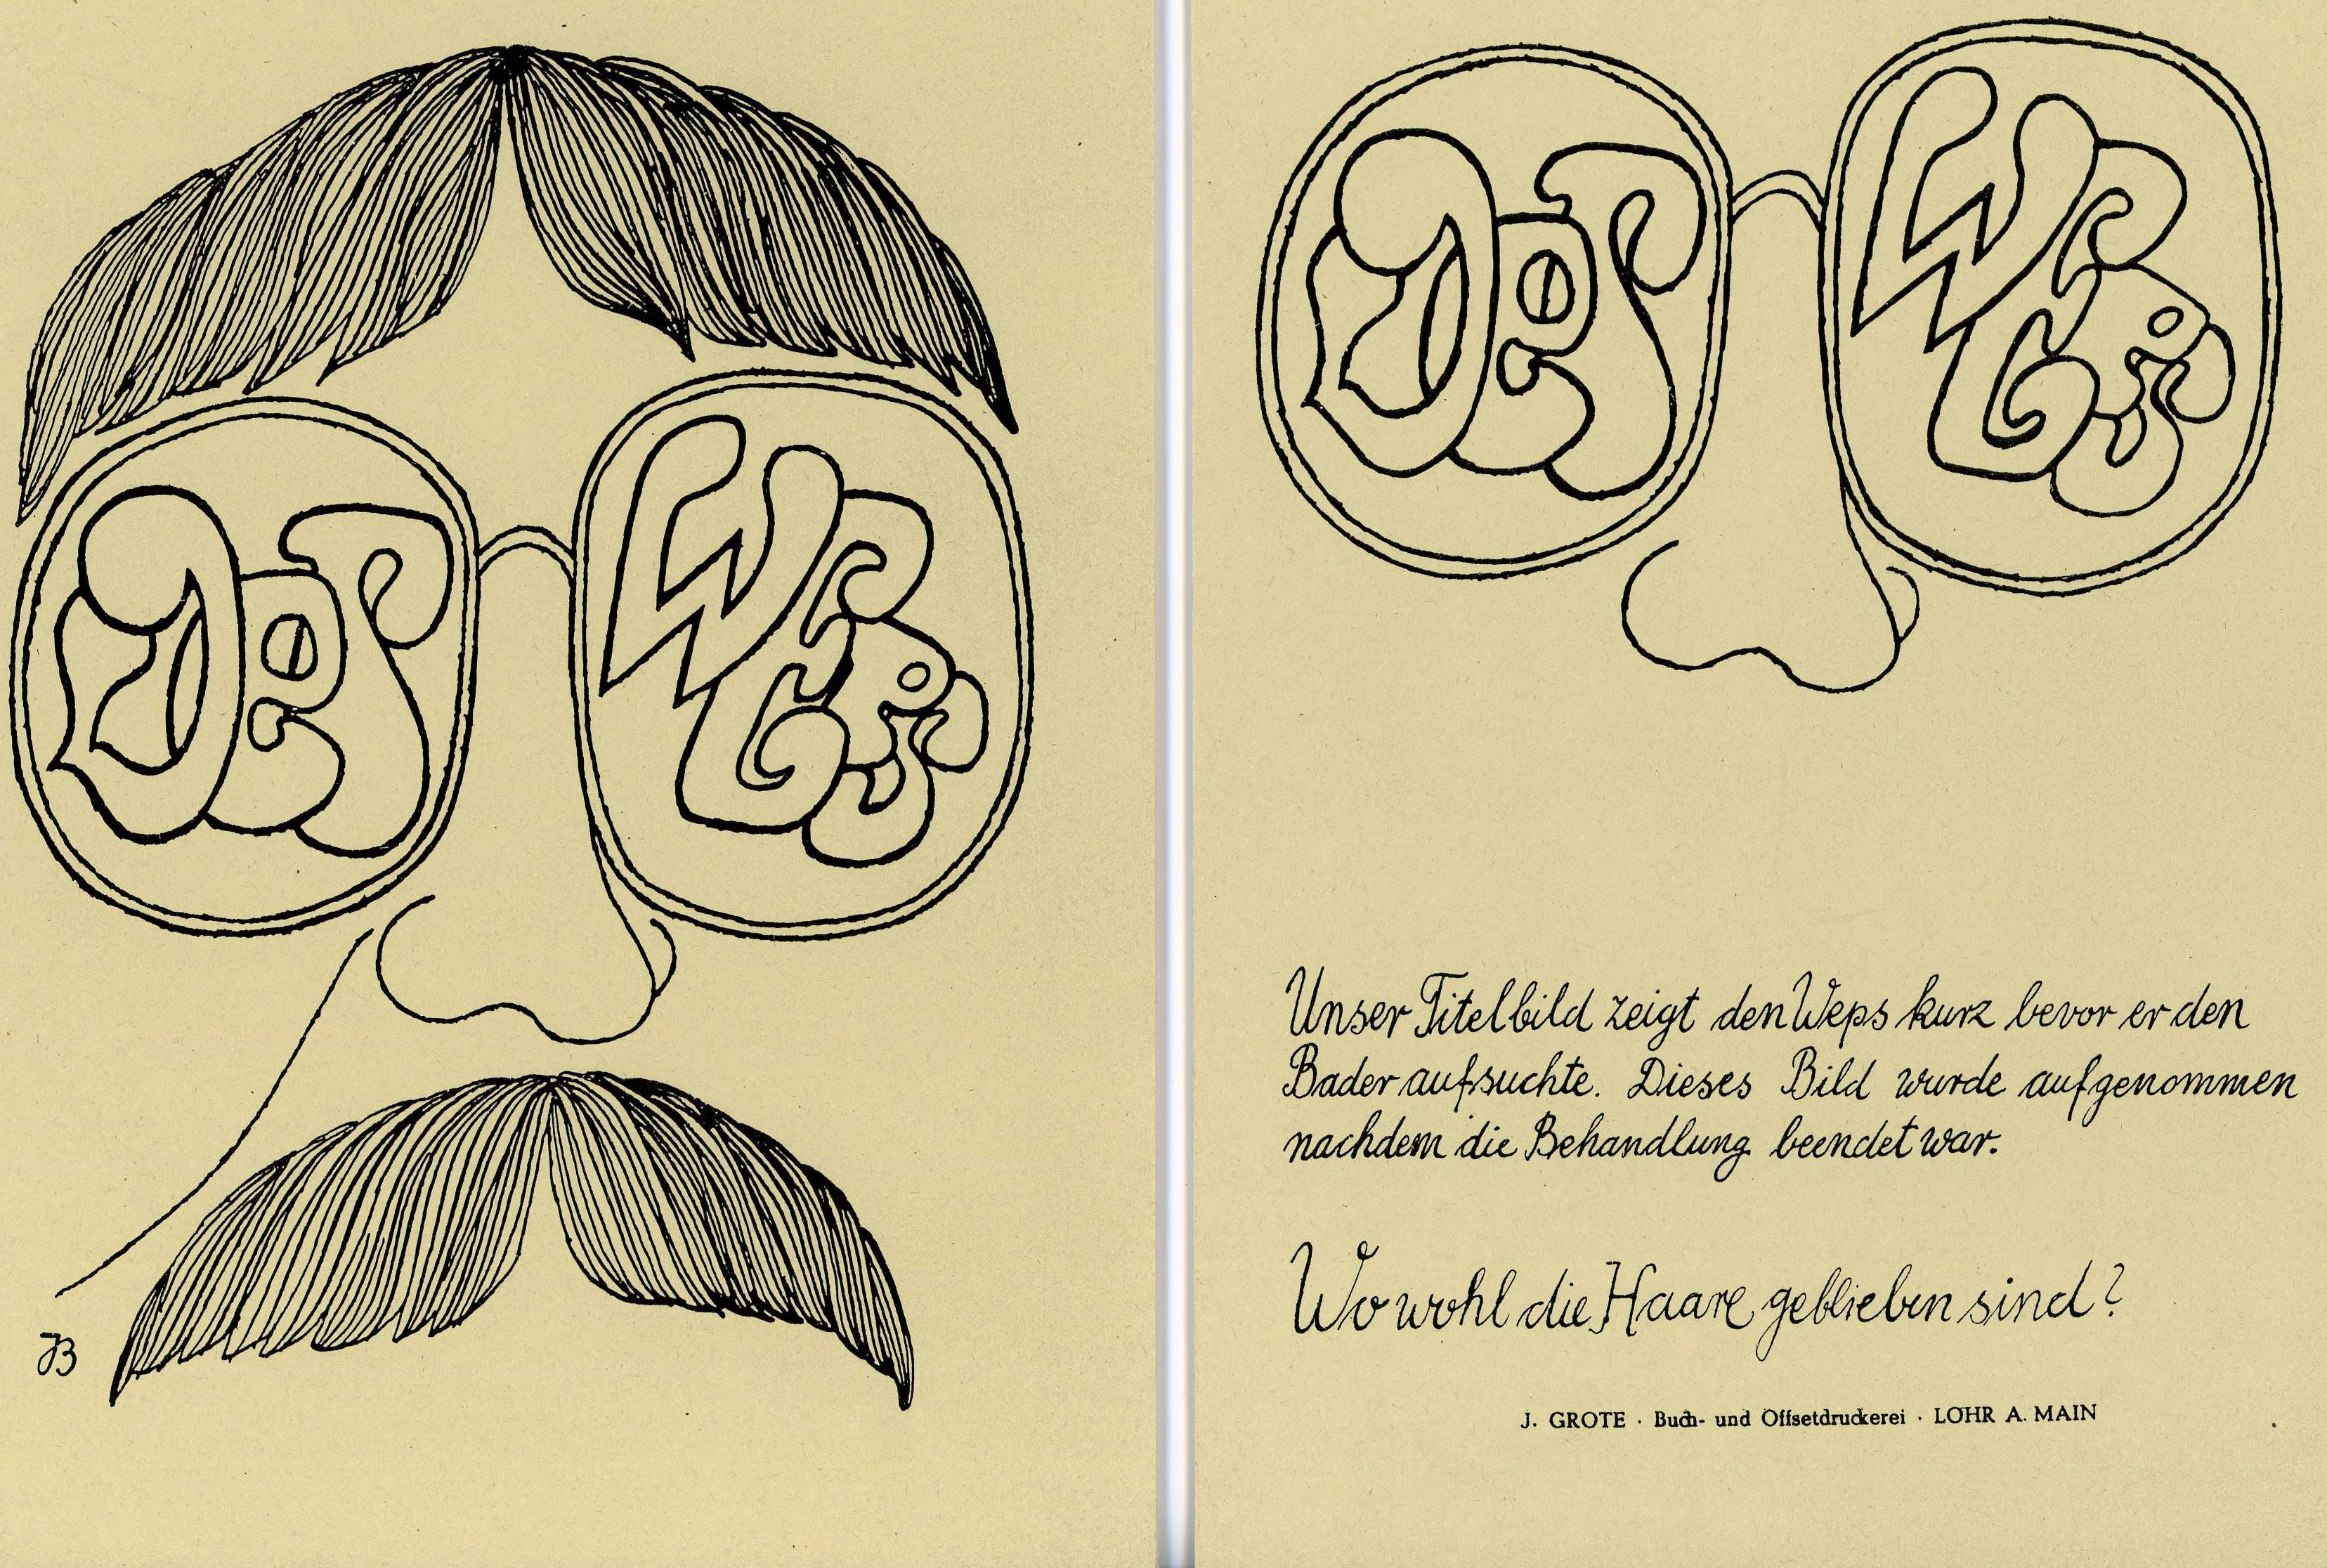 Der
Weps
JB
Der
Weps
Unser Titelbild zeigt den Weps kurz bevor er den
Bader aufsuchte. Dieses Bild wurde aufgenommen
nachdem die Behandlung beendet war.
Wo wohl die Haare geblieben sind?
J. GROTE · Buch- und Offsetdruckerei · LOHR A. MAIN